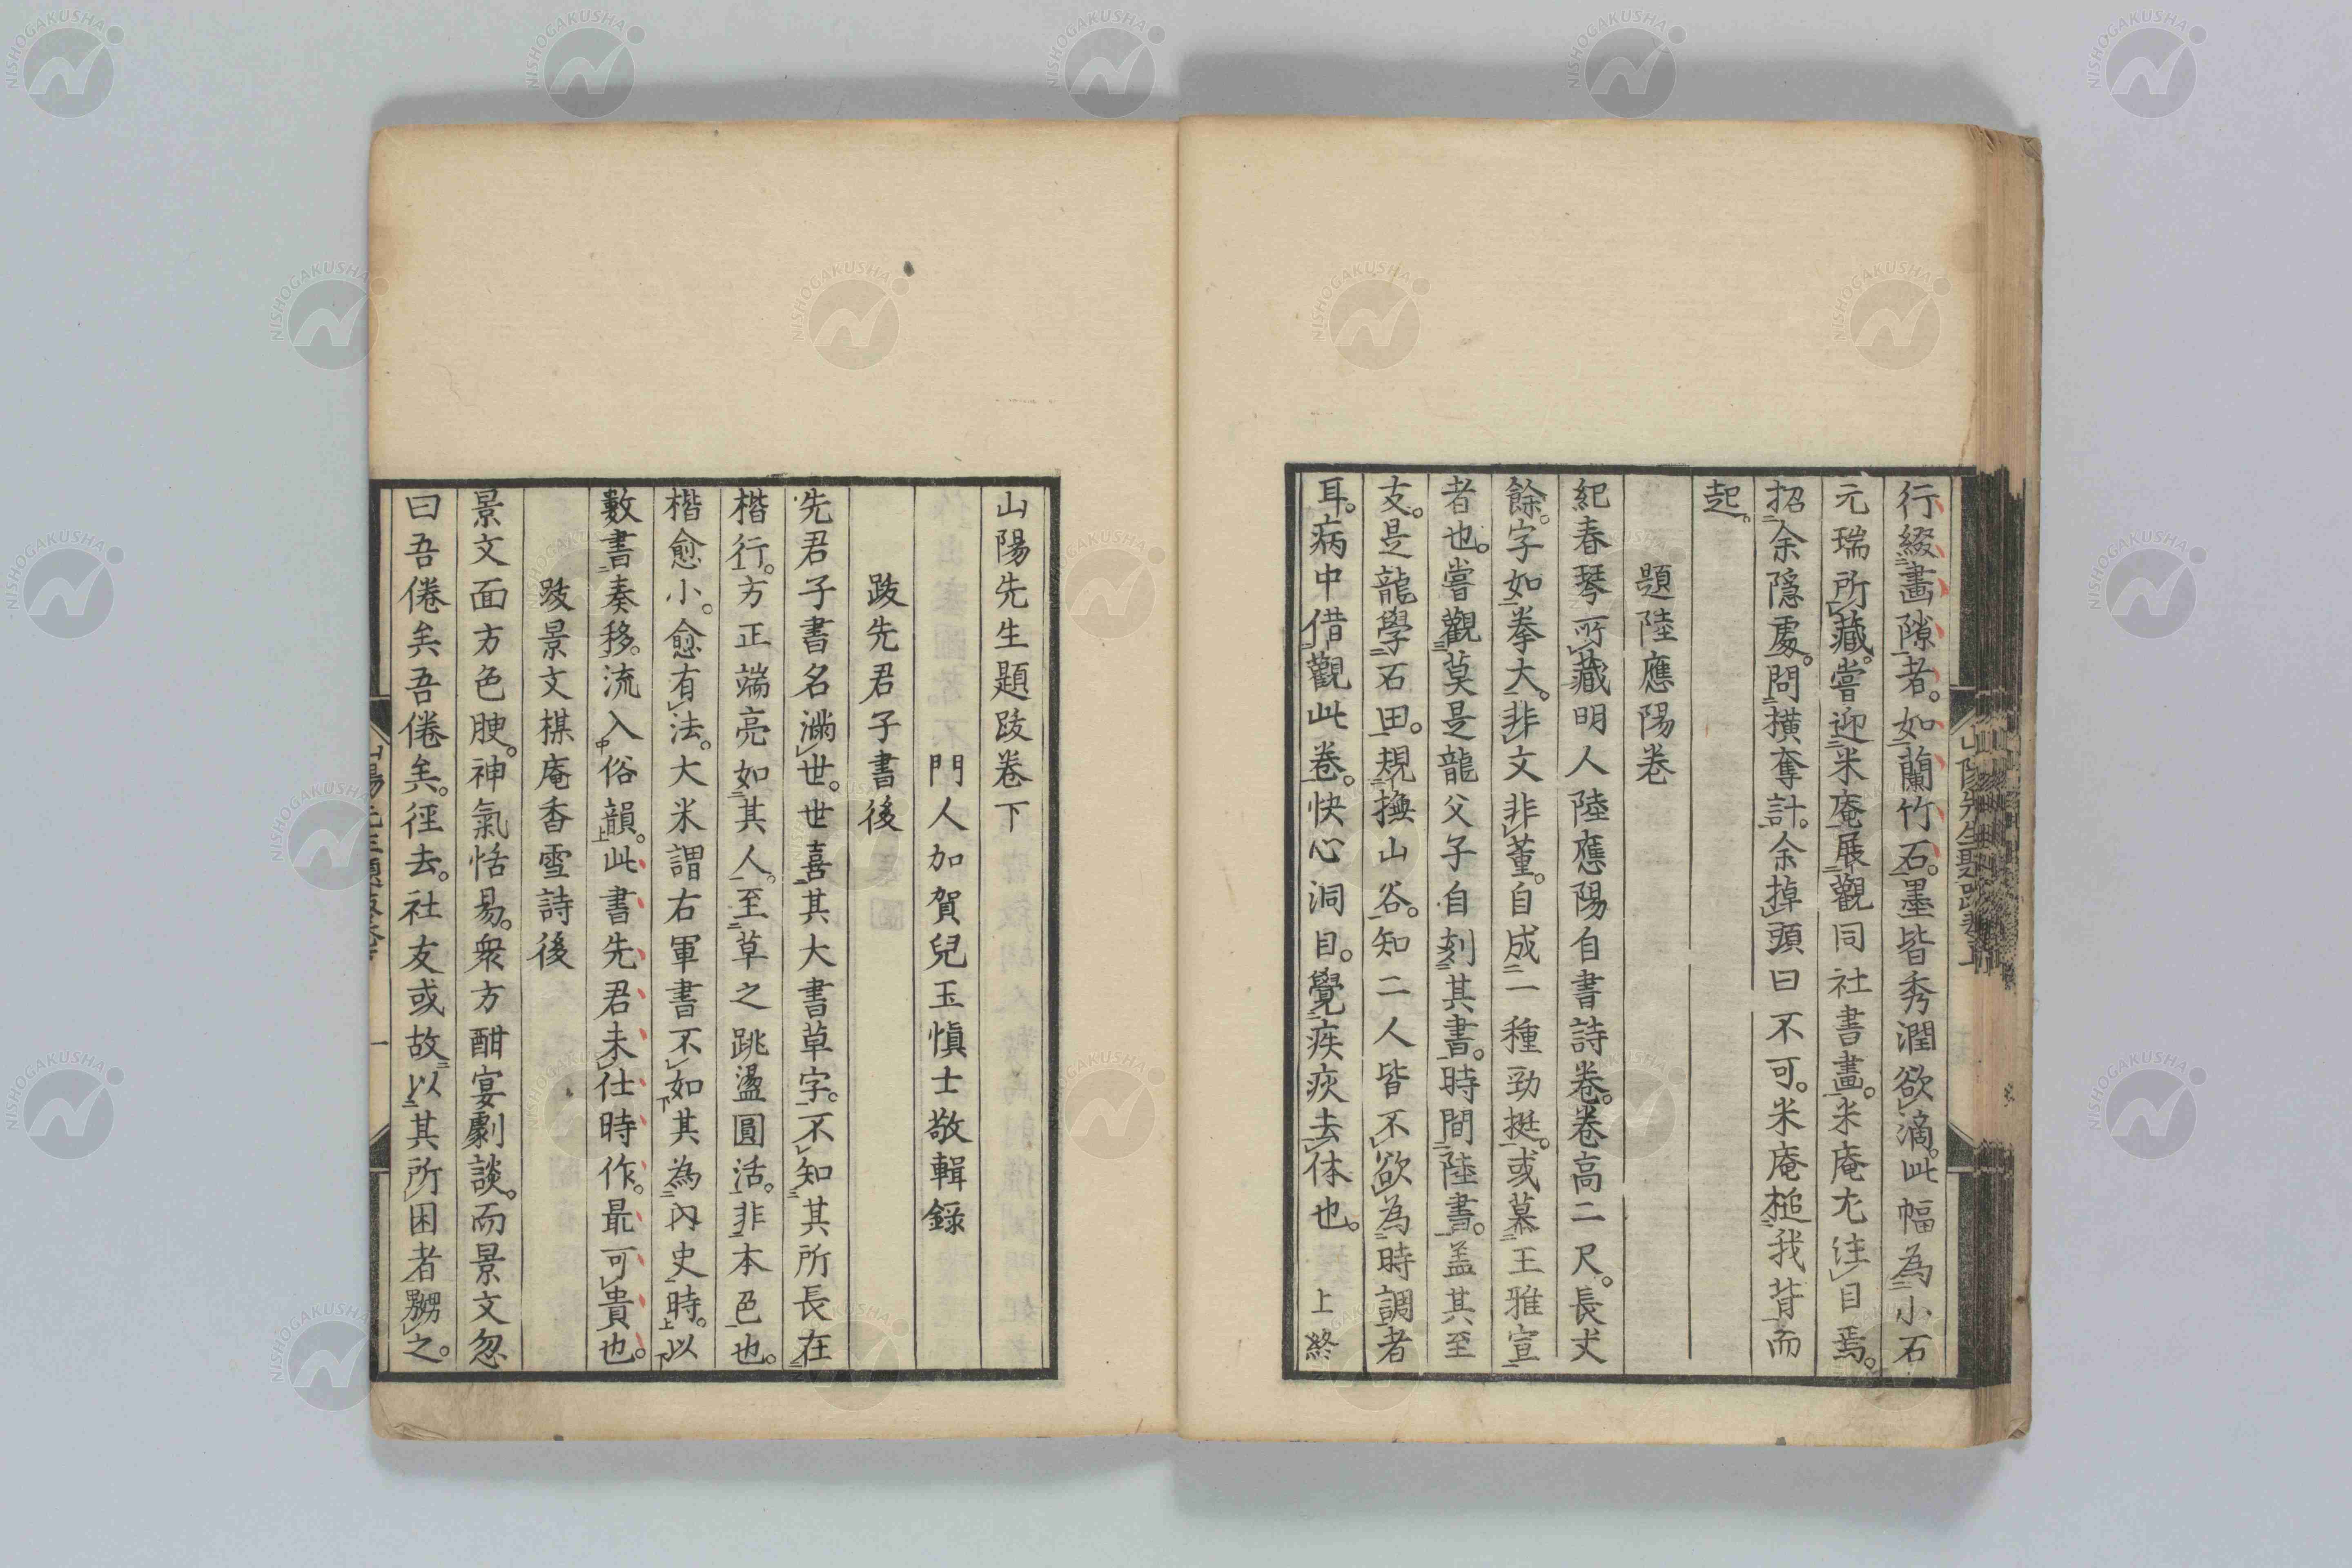 行綴畫隙者。如蘭竹石。墨皆秀潤欲滴。此幅為小石
元瑞所藏。嘗迎米庵展觀同社書畫。米庵尤注目焉。
招余隱處。問橫奪計。余掉頭曰不可。米庵搥我背而
起。
題陸應陽卷
紀春琴所藏明人陸應陽自書詩卷。卷高二尺。長丈
餘。字如拳大。非文非董。自成一種勁挺。或慕王雅宜
者也。嘗觀莫是龍父子自刻其書。時間陸書。盖其至
友。是龍學石田。規撫山谷。知二人皆不欲為時調者
耳。病中借觀此卷。快心洞目。覺疾疢去体也。 上終
山陽先生題跋卷下
門人加賀兒玉愼士敬輯錄
跋先君子書後
先君子書名滿世。世喜其大書草字。不知其所長在
楷行。方正端亮如其人。至草之跳盪圓活。非本色也。
楷愈小。愈有法。大米謂右軍書不如其為內史時。以
數書奏移。流入俗韻。此書先君未仕時作。最可貴也。
跋景文棋庵香雪詩後
景文面方色腴。神氣恬易。衆方酣宴劇談。而景文忽
曰吾倦矣吾倦矣。徑去。社友或故以其所困者嬲之。
一
NISHOGAKUSHA